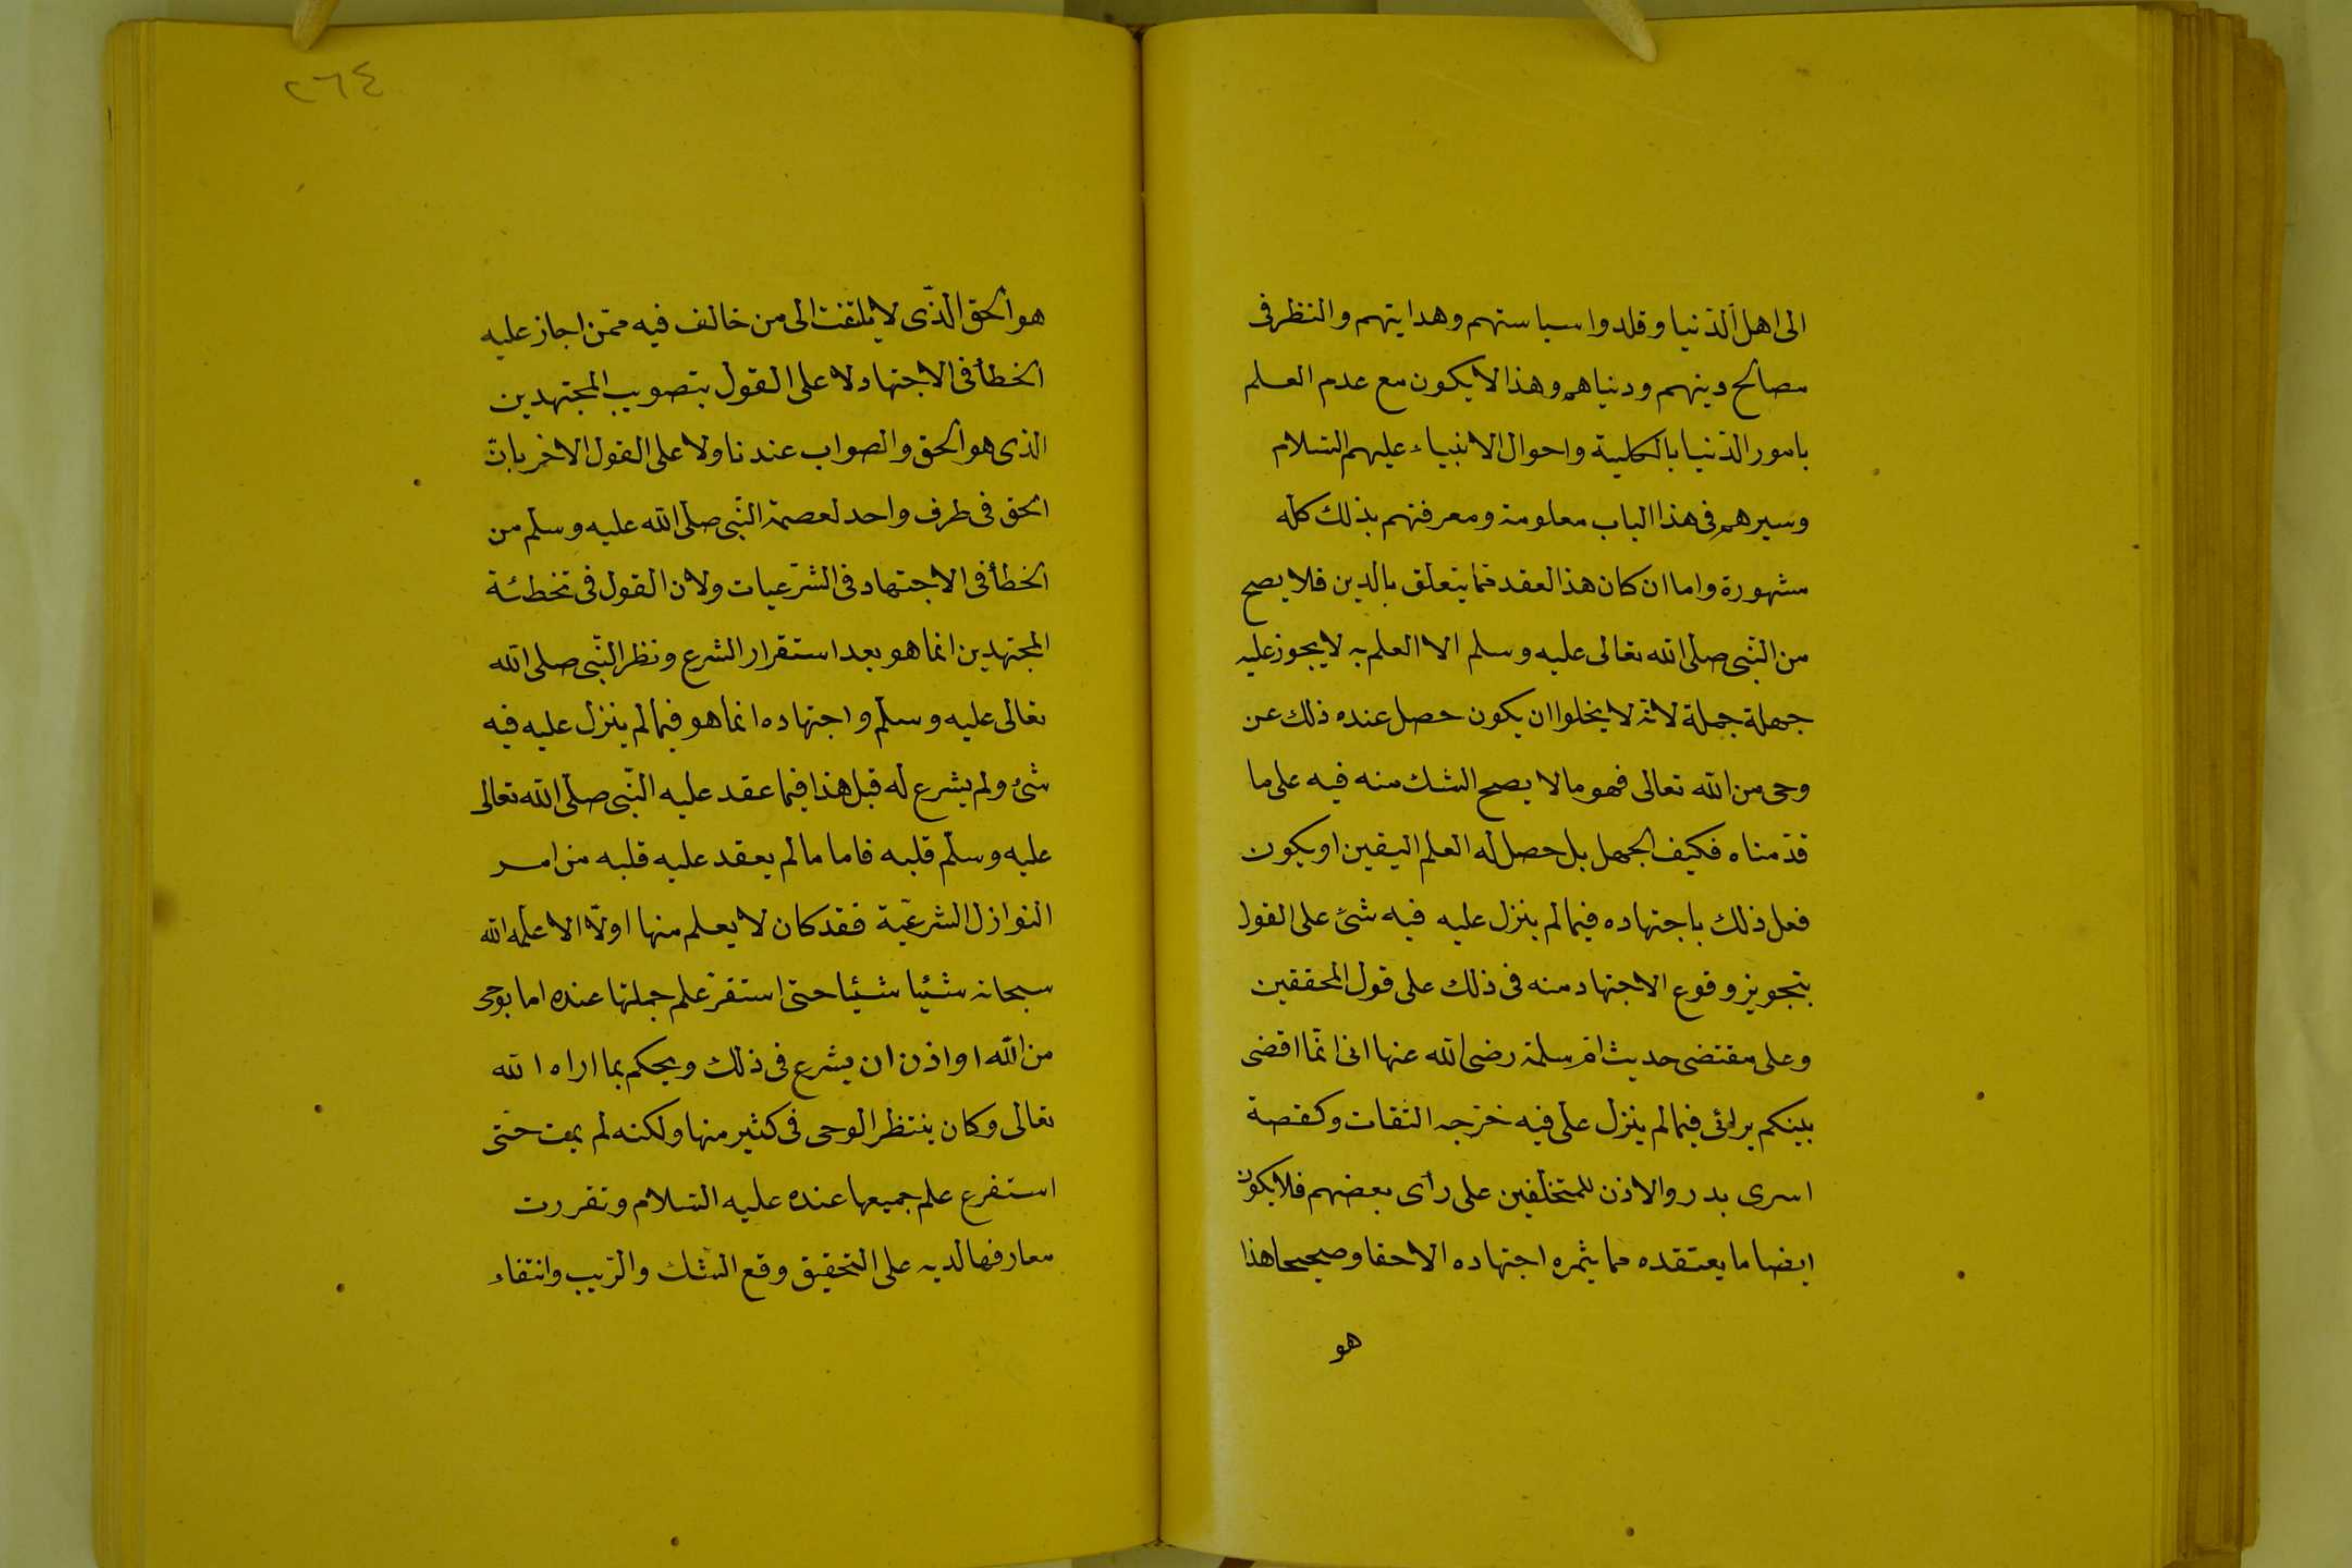 الى اهل الدنيا وقلدوا سياستهم وهدايتهم والنظر فى
مصالح دينهم ودنياهم وهذا لايكون مع عدم العلم
بامور الدّنيا بالكلية واحوال الانبياء عليهم السّلام
وسيرهم فى هذا الباب معلومة ومعرفتهم بذلك كله
مشهورة واما ان كان هذ العقد فما يتعلق بالدين فلا يصح
من النّبى صلى الله تعالى عليه وسلم الا العلم به لا يجوز عليه
جهلة جملة لانه لا يخلوا ان يكون حصل عنده ذلك عن
وحى من الله تعالى فهو مالا يصح الشك منه فيه على ما
قدّمناه فكيف الجهل بل حصل له العلم اليقين او يكون
فعل ذلك باجتهاده فيما لم ينزل عليه فيه شئ على القول
بتجويز وقوع الاجتهاد منه فى ذلك على قول المحققين
وعلى مقتضى حديث امّ سلمة رضى الله عنها انى انّما اقضى
بينكم برائى فيما لم ينزل علىّ فيه خرّجه الثقات وكقصة
اسرى بدر والاذن للمتخلفين على رأى بعضهم فلا يكون
ايضا ما يعتقده مما يثمره اجتهاده الاحقا وصحيحا هذا
هو
٢٦٤
هو الحق الّذى لا يلتفت الى من خالف فيه ممّن اجاز عليه
الخطأ فى الاجتهاد لا على القول بتصويب المجتهدين
الذى هو الحق والصواب عندنا ولا على القول الاخر بان
الحق فى طرف واحد لعصمة النّبى صلى الله عليه وسلم من
الخطأ فى الاجتهاد فى الشّرعيات ولان القول فى تخطئة
المجتهدين انما هو بعد استقرار الشرع ونظر النّبى صلى الله
تعالى عليه وسلّم واجتهاده انما هو فيما لم ينزل عليه فيه
شئ ولم يشرع له قبل هذا فيما عقد عليه النّبى صلى الله تعالى
عليه وسلّم قلبه فاما مالم يعقد عليه قلبه من امر
النوازل الشرعيّة فقد كان لا يعلم منها اولّا الا علّمه الله
سبحانه شئيا شئيا حتى استقرّ علم جملتها عنده اما بوحى
من الله او اذن ان يشرع فى ذلك ويحكم بما اراه الله
تعالى وكان ينتظر الوحى فى كثير منها ولكنه لم يمت حتّى
استفرع علم جميعها عنده عليه السّلام وتقررت
معارفها لديه على التحقيق وقع الشّك والرّيب وانتفاء